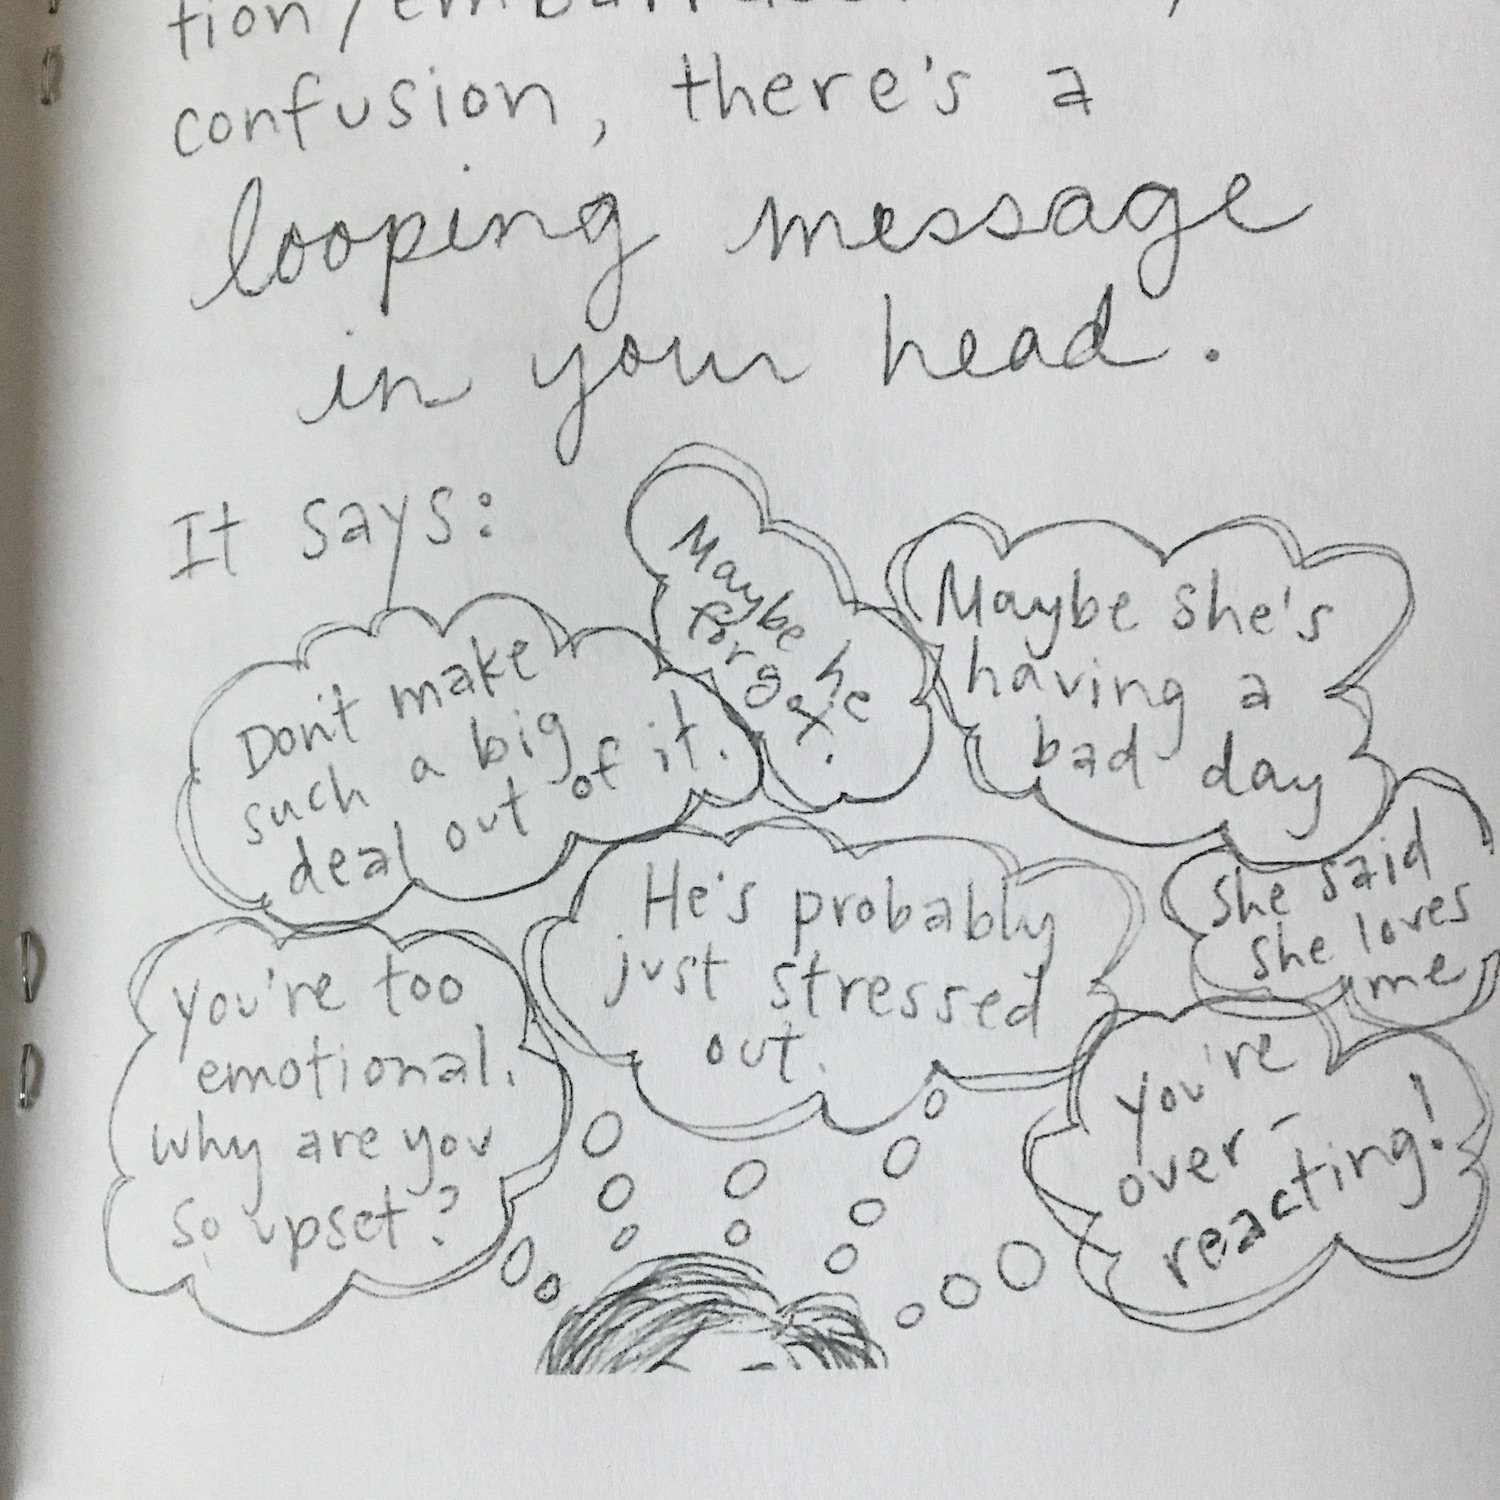 confusion, there's a
looping message
in your head.
It says:
Don't make
such a big
deal out of it.
Maybe he
forgot.
Maybe she's
having a
bad day
You're too
emotional.
Why are you
so upset?
He's probably
just stressed
out.
She said
she loves
me
You're
over-
reacting!